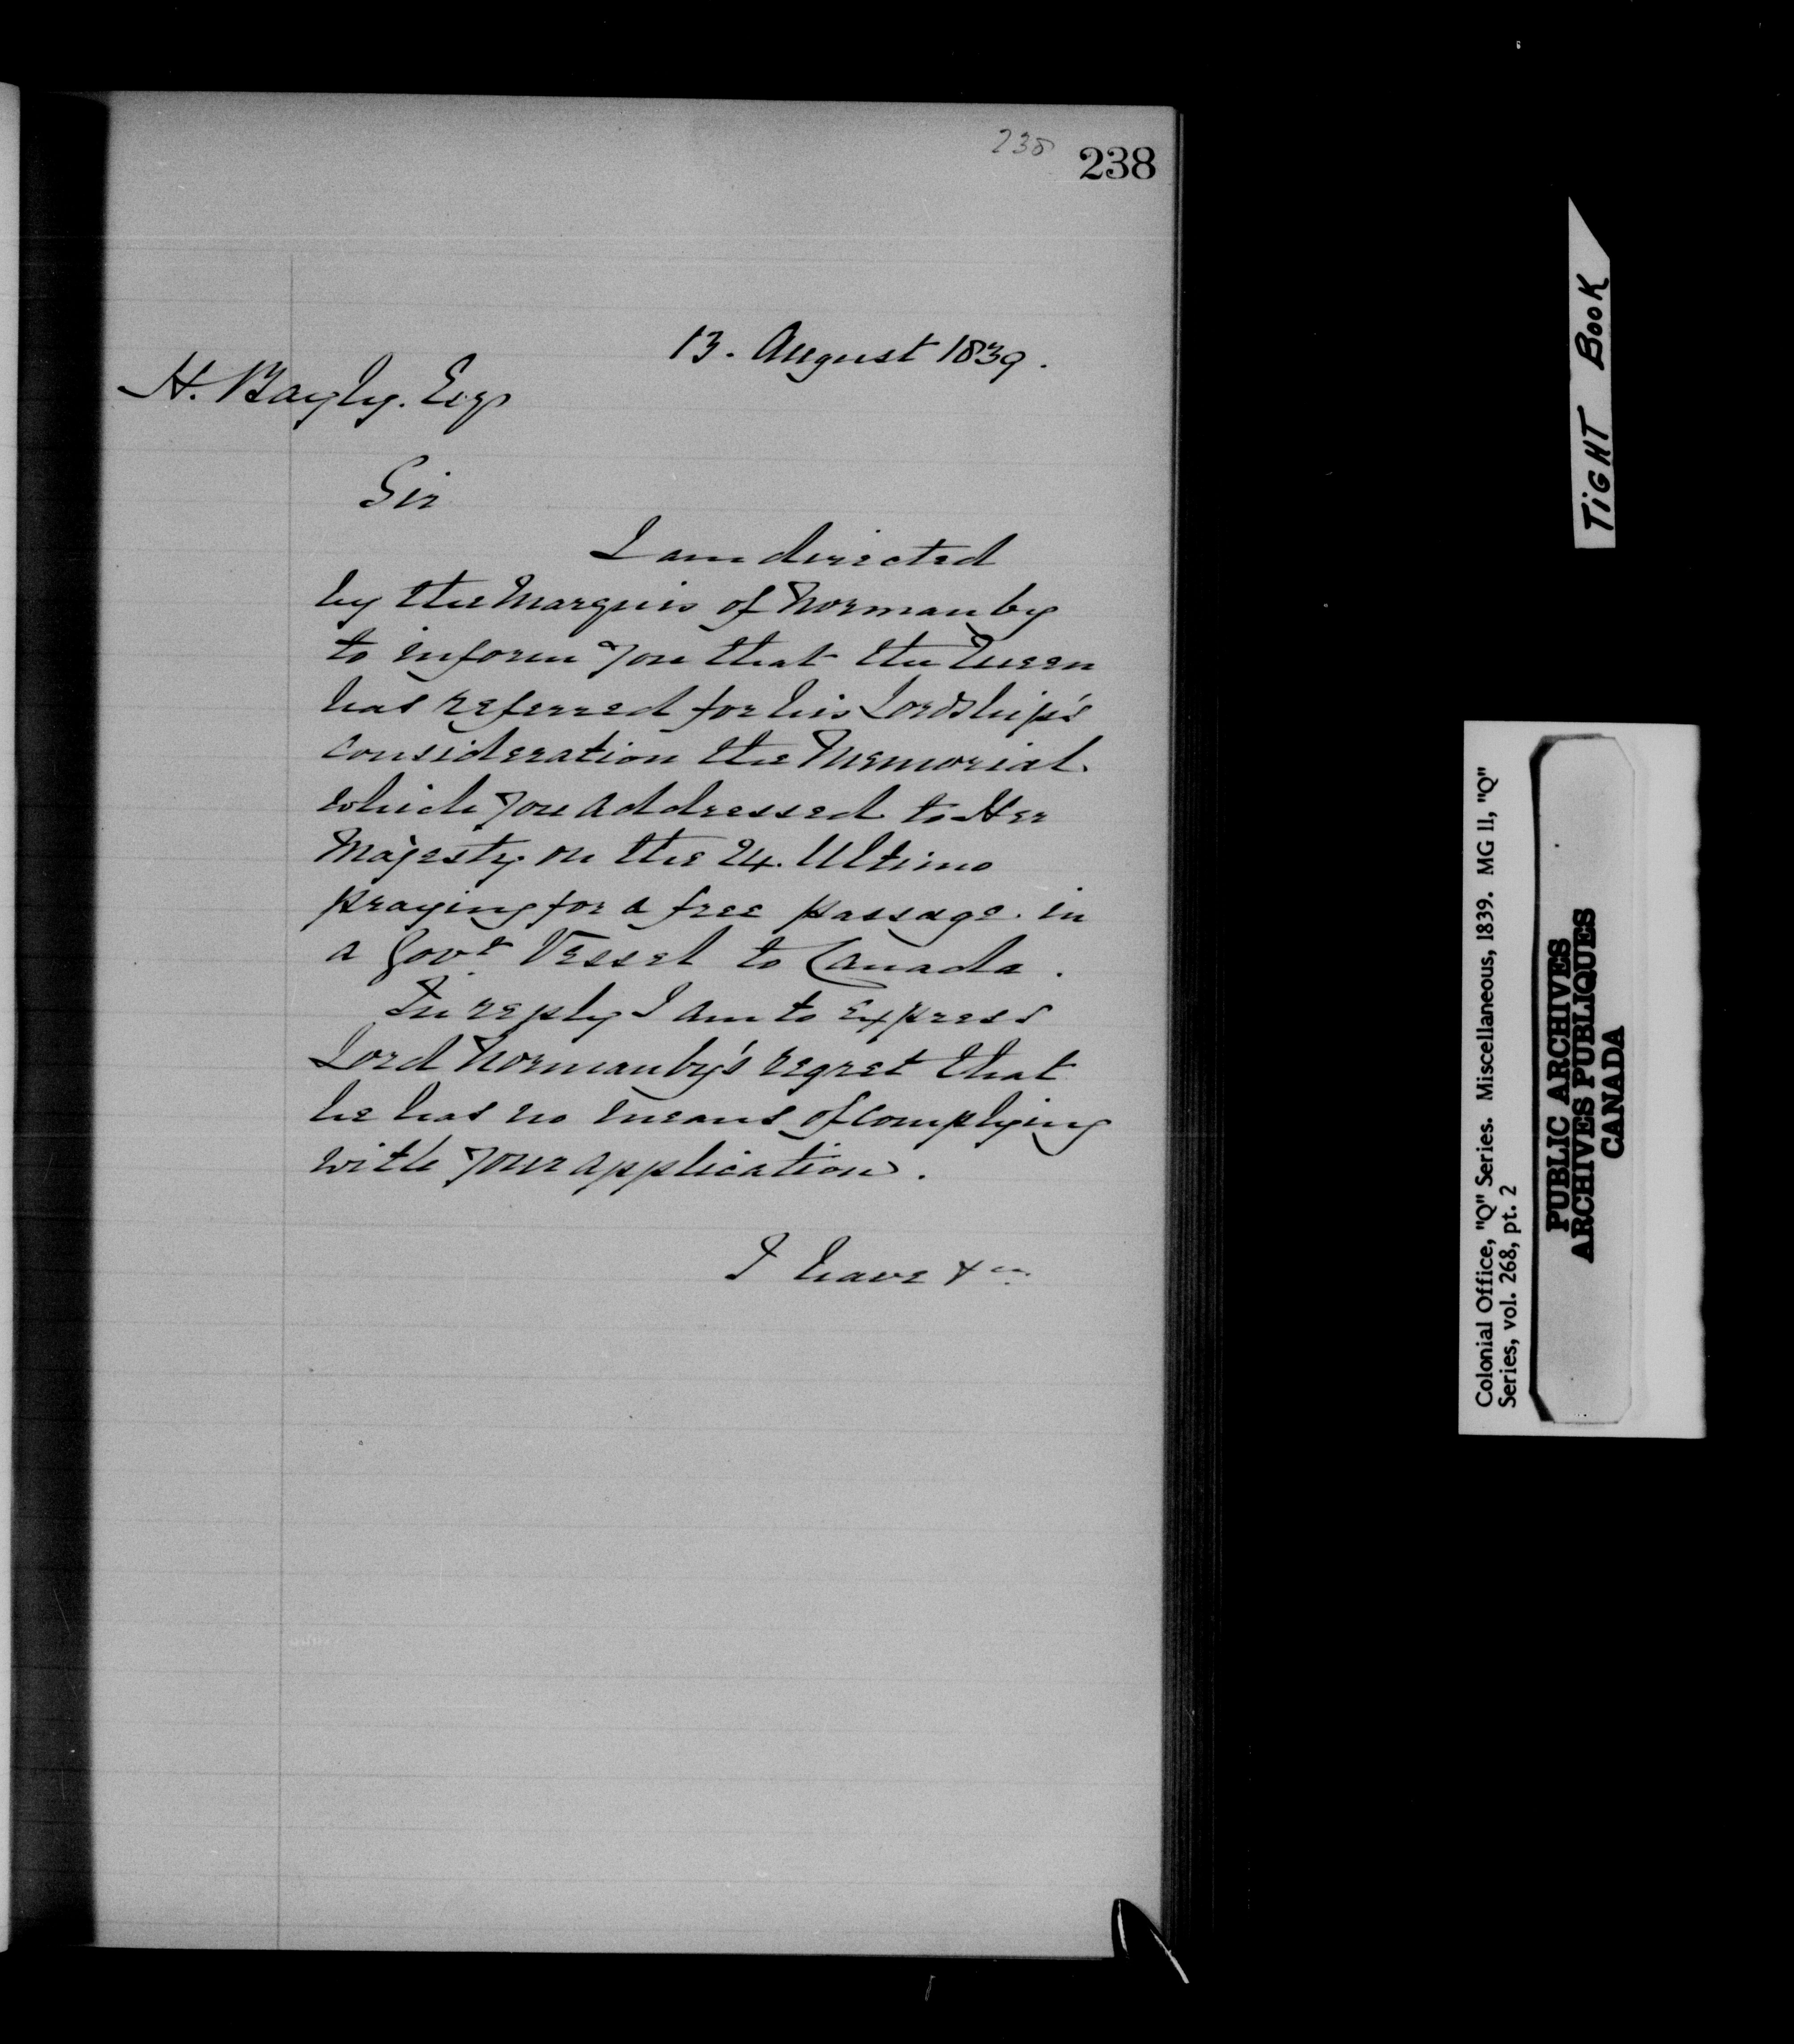 238 238
13. August 1839.
H. Bayly. Esqr
Sir
I am directed
by the Marquis of Normanby
to inform you that the Queen
has referred for his Lordship's
consideration the Memorial
which you addressed to Her
Majesty on the 24. Ultimo
praying for a free passage in
a Govt Vessel to Canada.
In reply I am to express
Lord Normanby's regret that
he has no means of complying
with your application.
I have &c
TIGHT BOOK
Colonial Office, "Q" Series. Miscellaneous, 1839. MG 11, "Q"
Series, vol. 268, pt. 2
PUBLIC ARCHIVES
ARCHIVES PUBLIQUES
CANADA